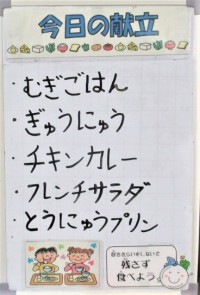 今日の献立
・むぎごはん
・ぎゅうにゅう
・チキンカレー
・フレンチサラダ
・とうにゅうプリン
残さず
食べよう。